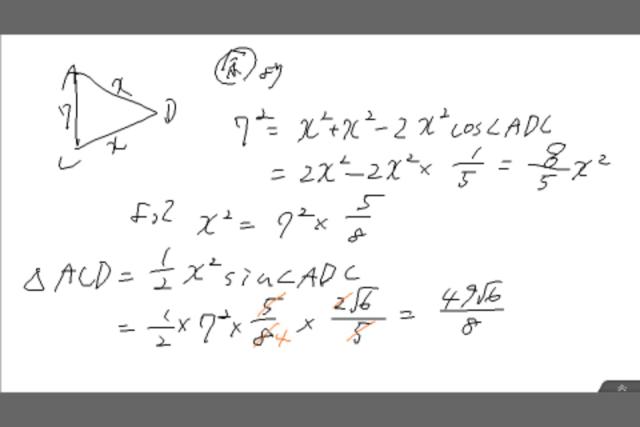 A x D
7 x
C
余 より
7² = x² + x² - 2x² cos∠ADC
= 2x² - 2x² × 1/5 = 8/5 x²
よって x² = 7² × 5/8
△ACD = 1/2 x² sin∠ADC
= 1/2 × 7² × 5/8 4 × 2√6/5 = 49√6/8